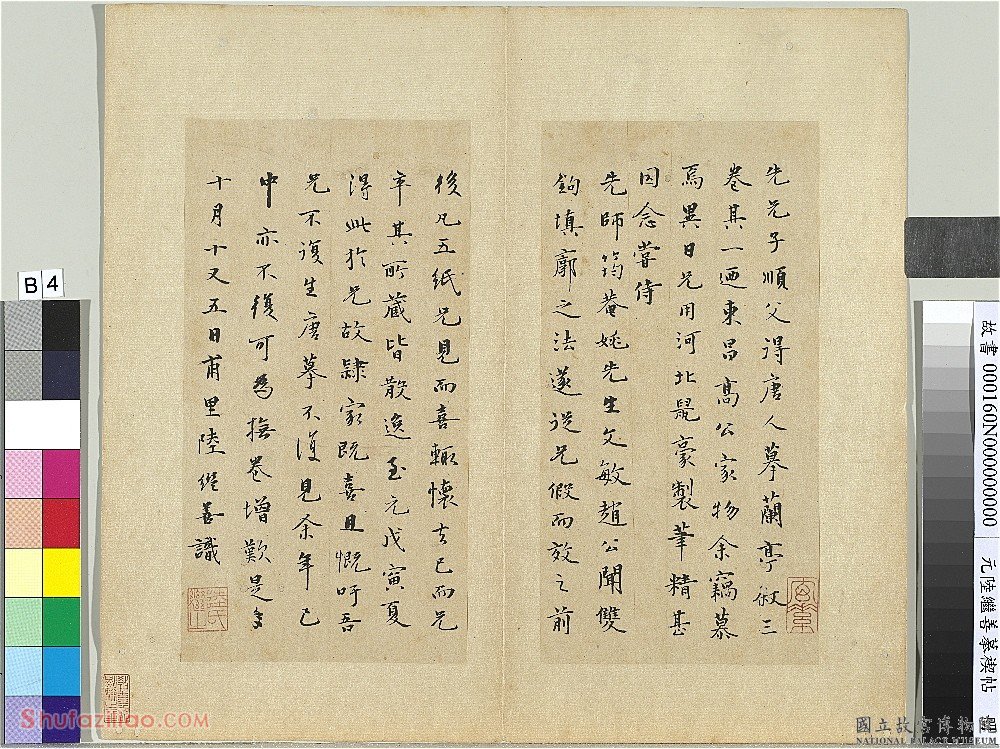 先兄子順父得唐人摹蘭亭敘三
卷其一迺東昌高公家物余竊慕
焉異日兄用河北鼠豪製筆精甚
因念嘗侍
先師筠菴姚先生文敏趙公聞雙
鉤填廓之法遂從兄假而效之前
後凡五紙兄見而喜輒懷去已而兄
卒其所藏皆散逸至元戊寅夏
得此於兄故隸家既喜且慨吁吾
兄不復生唐摹不復見余年已
中亦不復可為撫卷增歎是年
十月十又五日甫里陸繼善識
B 4
故書 000160N000000000
元陸繼善摹禊帖
國立故宮博物院
NATIONAL PALACE MUSEUM
Shufaziliao.COM